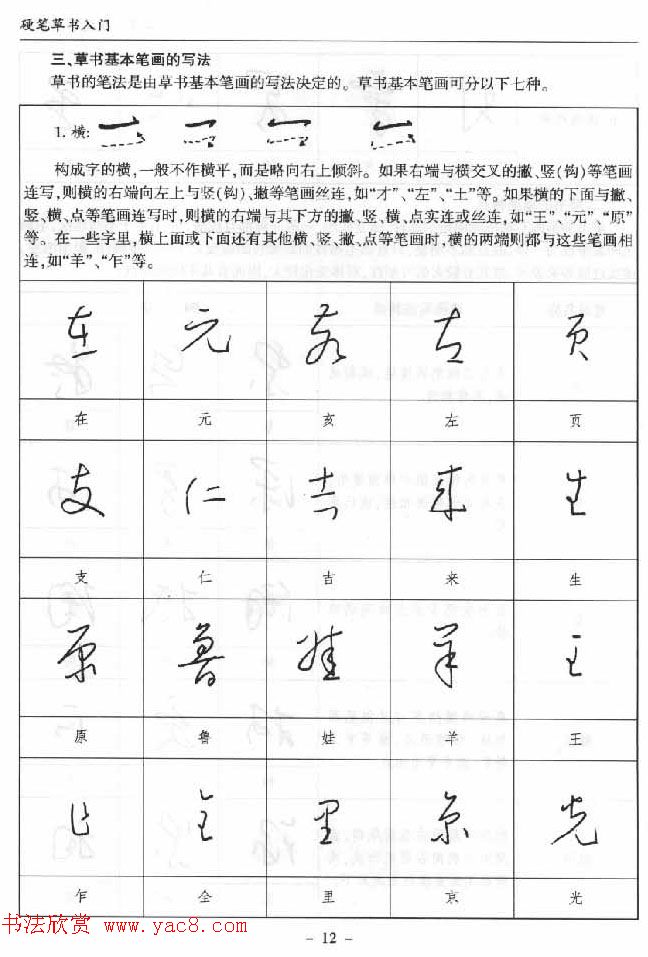 硬笔草书入门
三、草书基本笔画的写法
草书的笔法是由草书基本笔画的写法决定的。草书基本笔画可分以下七种。
1. 横:
构成字的横,一般不作横平,而是略向右上倾斜。如果右端与横交叉的撇、竖(钩)等笔画
连写,则横的右端向左上与竖(钩)、撇等笔画丝连,如“才”、“左”、“土”等。如果横的下面与撇、
竖、横、点等笔画连写时,则横的右端与其下方的撇、竖、横、点实连或丝连,如“王”、“元”、“原”
等。在一些字里,横上面或下面还有其他横、竖、撇、点等笔画时,横的两端则都与这些笔画相
连,如“羊”、“乍”等。
在 元 亥 左 页
在 元 亥 左 页
支 仁 吉 来 生
支 仁 吉 来 生
原 鲁 娃 羊 王
原 鲁 娃 羊 王
乍 全 里 京 光
乍 全 里 京 光
书法欣赏 www.yac8.com
- 12 -